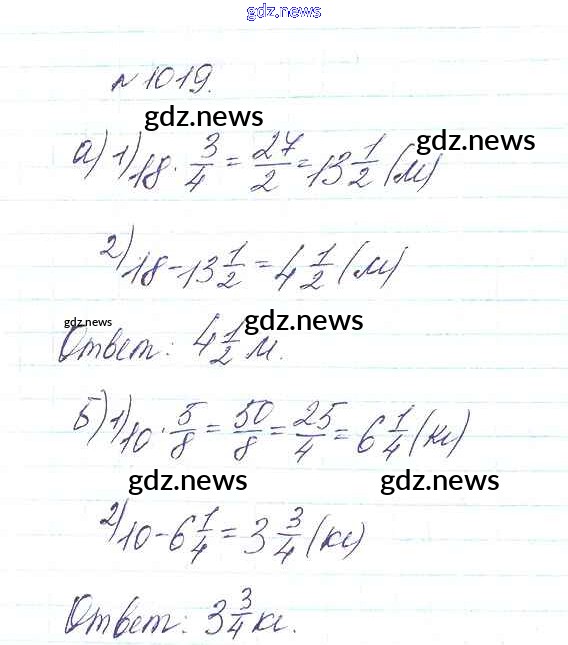 gdz.news
№1019.
gdz.news
а) 1) 18 · 3/4 = 27/2 = 13 1/2 (м)
gdz.news
2) 18 - 13 1/2 = 4 1/2 (м)
gdz.news
gdz.news
Ответ: 4 1/2 м.
Б) 1) 10 · 5/8 = 50/8 = 25/4 = 6 1/4 (кг)
gdz.news
gdz.news
2) 10 - 6 1/4 = 3 3/4 (кг)
gdz.news
Ответ: 3 3/4 кг.